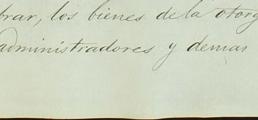 brar, los bienes de la otorg
administradores y demas